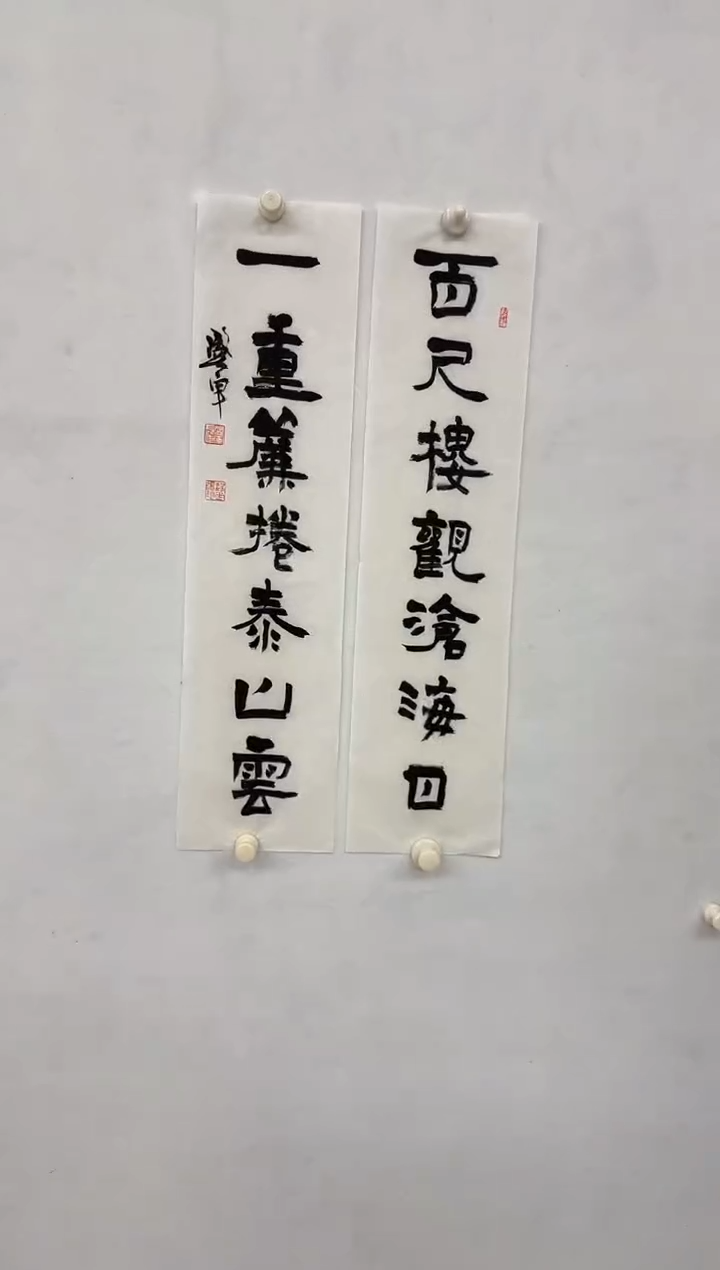 百尺樓觀滄海日
一重簾捲泰山雲